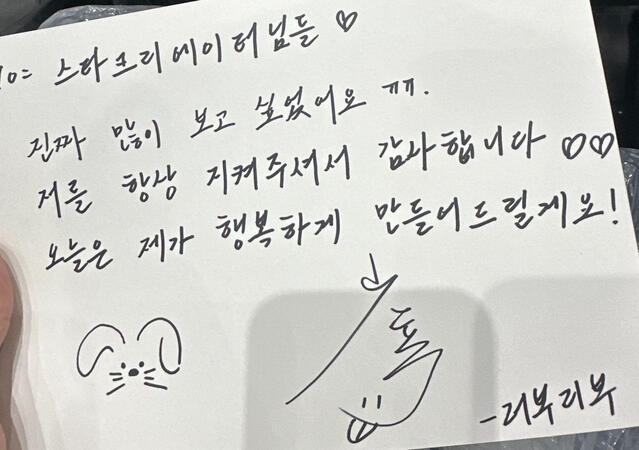 To= 스타크리에이터님들 ♡
진짜 많이 보고 싶었어요 ㅠㅠ.
저를 항상 지켜주셔서 감사합니다 ♡♡
오늘은 제가 행복하게 만들어드릴게요!
-러부러부